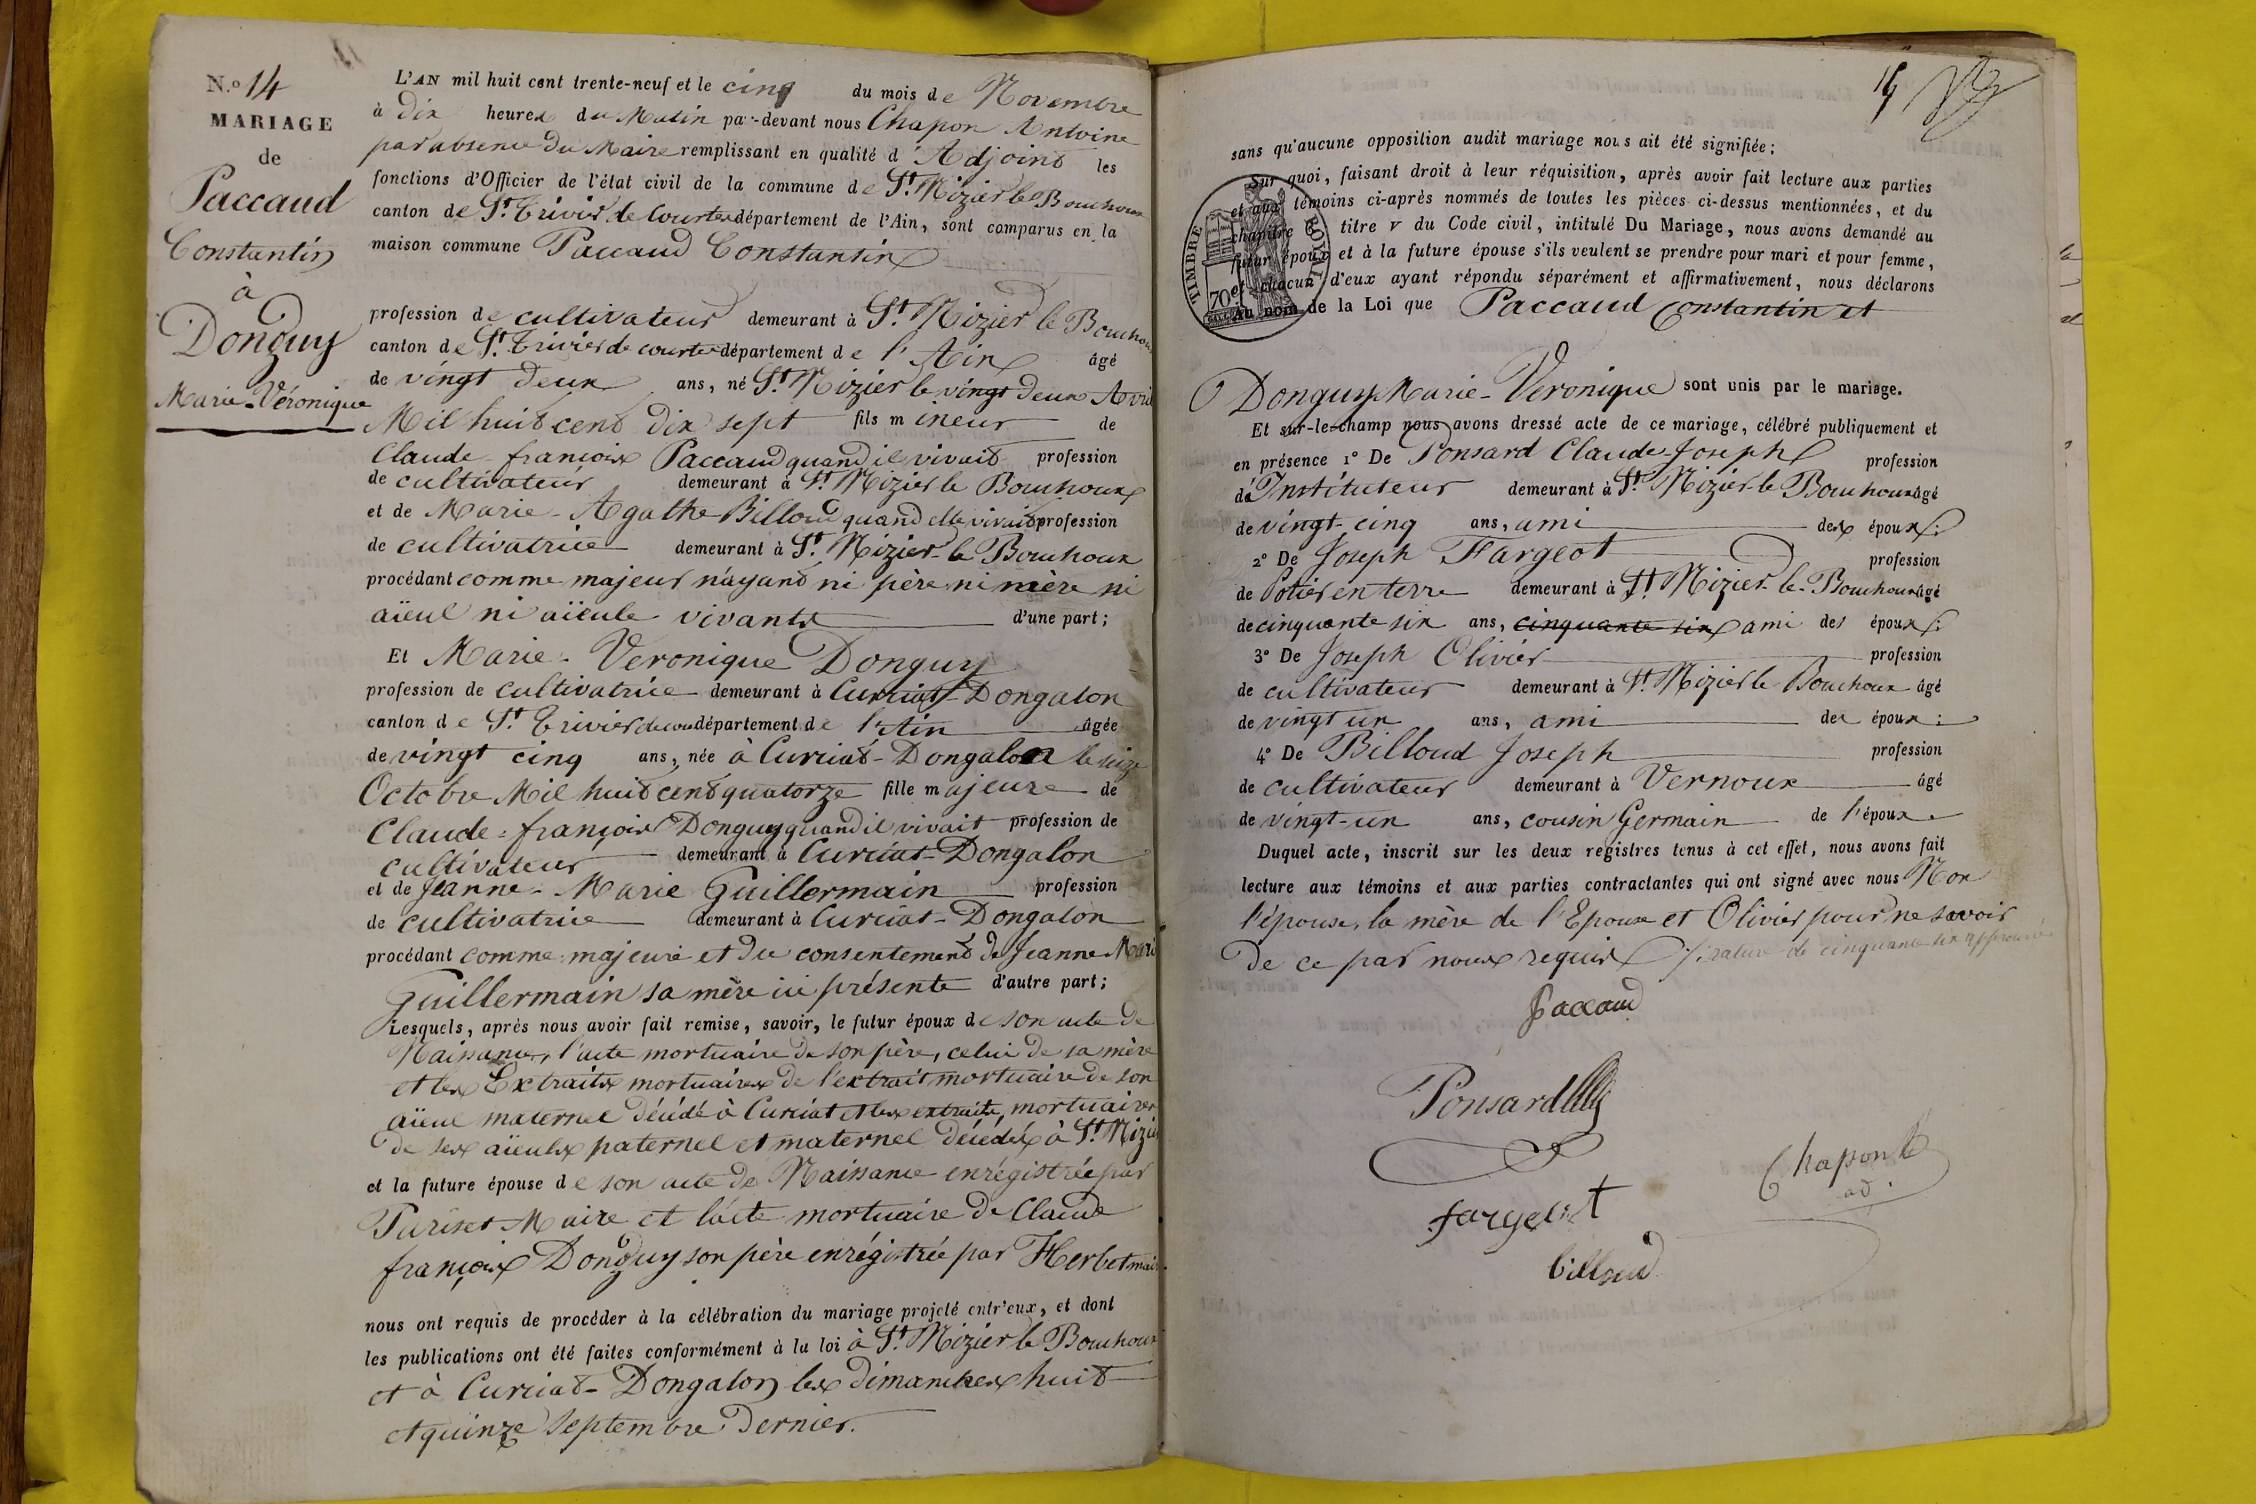 N.o 14
MARIAGE
de
Paccaud
Constantin
à
Donguy
Marie-Véronique
L'AN mil huit cent trente-neuf et le cinq du mois de Novembre
à dix heures du Matin par-devant nous Chapon Antoine
par absence du Maire remplissant en qualité d'Adjoint les
fonctions d'Officier de l'état civil de la commune de St. Nizier le Bouchoux
canton de St. Trivier de Courtes département de l'Ain, sont comparus en la
maison commune Paccaud Constantin
profession de cultivateur demeurant à St. Nizier le Bouchoux
canton de St. Trivier de courtes département de l'Ain âgé
de vingt deux ans, né St. Nizier le vingt deux Avril
Mil huit cent dix sept fils mineur de
Claude-françois Paccaud quand il vivait profession
de cultivateur demeurant à St. Nizier le Bouchoux
et de Marie-Agathe Billoud quand elle vivait profession
de cultivatrice demeurant à St. Nizier-le Bouchoux
procédant comme majeur n'ayant ni père ni mère ni
aïeul ni aïeule vivants d'une part;
Et Marie-Veronique Donguy
profession de cultivatrice demeurant à Curciat-Dongalon
canton de St. Trivier de cou département de l'Ain âgée
de vingt cinq ans, née à Curciat-Dongalon le seize
Octobre Mil huit cent quatorze fille majeure de
Claude-françois Donguy quand il vivait profession de
cultivateur demeurant à Curciat-Dongalon
et de Jeanne-Marie Guillermain profession
de cultivatrice demeurant à Curciat-Dongalon
procédant comme majeure et du consentement de Jeanne Marie
Guillermain sa mère ici présente d'autre part;
Lesquels, après nous avoir fait remise, savoir, le futur époux de son acte de
Naissance, l'acte mortuaire de son père, celui de sa mère
et les Extraits mortuaires de l'extrait mortuaire de son
aïeul maternel décédé à Curciat et les extraits mortuaires
de ses aïeuls paternel et maternel décédés à St. Nizier
et la future épouse de son acte de Naissance enrégistrée par
Puriset Maire et l'acte mortuaire de Claude
françois Donguy son père enrégistrée par Herbet maire
nous ont requis de procéder à la célébration du mariage projeté entr'eux, et dont
les publications ont été faites conformément à la loi à St. Nizier le Bouchoux
et à Curciat-Dongalon les dimanches huit
et quinze Septembre Dernier.
sans qu'aucune opposition audit mariage nous ait été signifiée;
Sur quoi, faisant droit à leur réquisition, après avoir fait lecture aux parties
et aux témoins ci-après nommés de toutes les pièces ci-dessus mentionnées, et du
chapitre 6 titre v du Code civil, intitulé Du Mariage, nous avons demandé au
futur époux et à la future épouse s'ils veulent se prendre pour mari et pour femme,
et chacun d'eux ayant répondu séparément et affirmativement, nous déclarons
Au nom de la Loi que Paccaud Constantin et
TIMBRE ROYAL
70c
Donguy Marie-Veronique sont unis par le mariage.
Et sur-le-champ nous avons dressé acte de ce mariage, célébré publiquement et
en présence 1° De Ponsard Claude-Joseph profession
d'Instituteur demeurant à St. Nizier-le Bouchoux âgé
de vingt-cinq ans, ami des époux:
2° De Joseph Fargeot profession
de Potier en terre demeurant à St. Nizier-le-Bouchoux âgé
de cinquante six ans, cinquante six ami des époux:
3° De Joseph Olivier profession
de cultivateur demeurant à St. Nizier le Bouchoux âgé
de vingt un ans, ami des époux:
4° De Billoud Joseph profession
de cultivateur demeurant à Vernoux âgé
de vingt-un ans, cousin Germain de l'époux
Duquel acte, inscrit sur les deux registres tenus à cet effet, nous avons fait
lecture aux témoins et aux parties contractantes qui ont signé avec nous Non
l'épouse, la mère de l'Epouse et Olivier pour ne savoir
De ce par nous requis rature de cinquante six approuvée
Paccaud
Ponsard
Chapon
ad.
fargeot
billoud